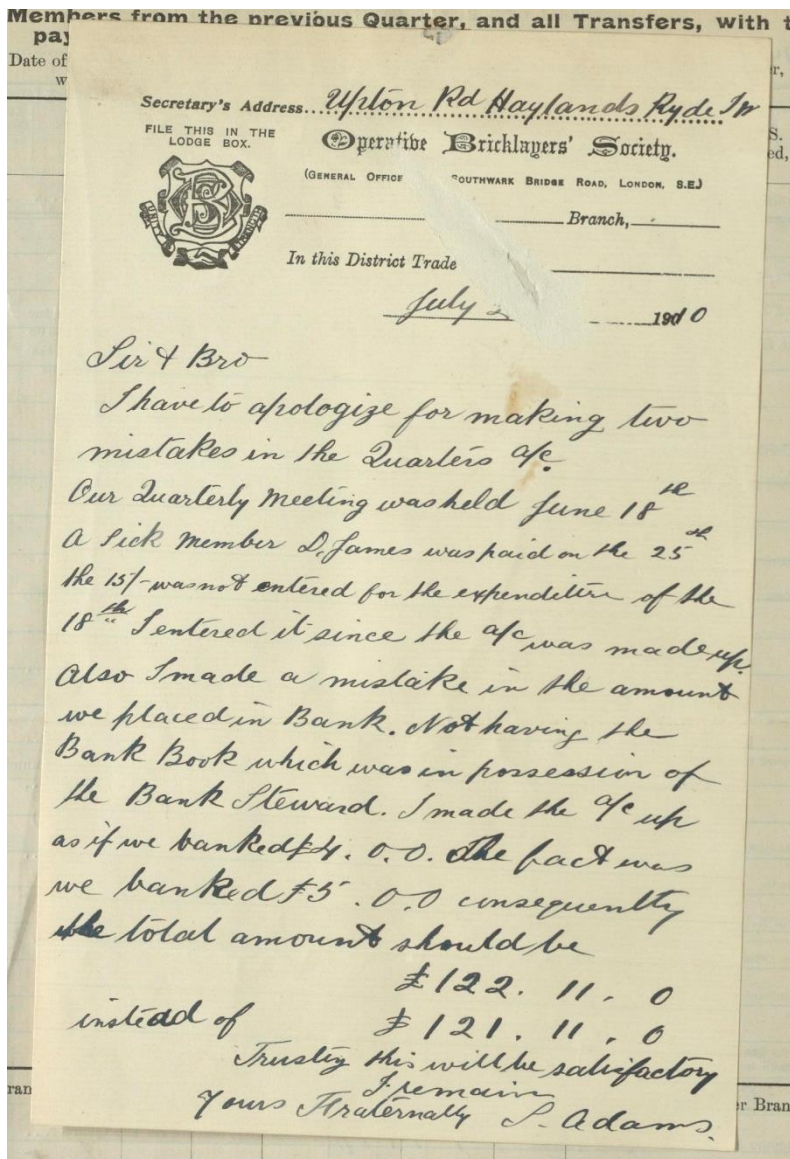 Members from the previous Quarter, and all Transfers, with
pay
Date of
w
Secretary's Address... Upton Rd Haylands Ryde IW
FILE THIS IN THE
LODGE BOX.
Operative Bricklayers' Society.
(GENERAL OFFICE SOUTHWARK BRIDGE ROAD, LONDON, S.E.)
OBS
UNITY
STRENGTH
Branch,
In this District Trade
July 1910
Sir & Bro
I have to apologize for making two
mistakes in the Quarters a/c.
Our Quarterly Meeting was held June 18th
A Sick Member D. James was paid on the 25th
the 15/- was not entered for the expenditure of the
18th I entered it since the a/c was made up.
Also I made a mistake in the amount
we placed in Bank. Not having the
Bank Book which was in possession of
the Bank Steward. I made the a/c up
as if we banked £4. 0.0. The fact was
we banked £5. 0.0 consequently
the total amount should be
£122. 11. 0
instead of £121. 11. 0
Trusting this will be satisfactory
I remain
Yours Fraternally S. Adams.
ran
er Bran